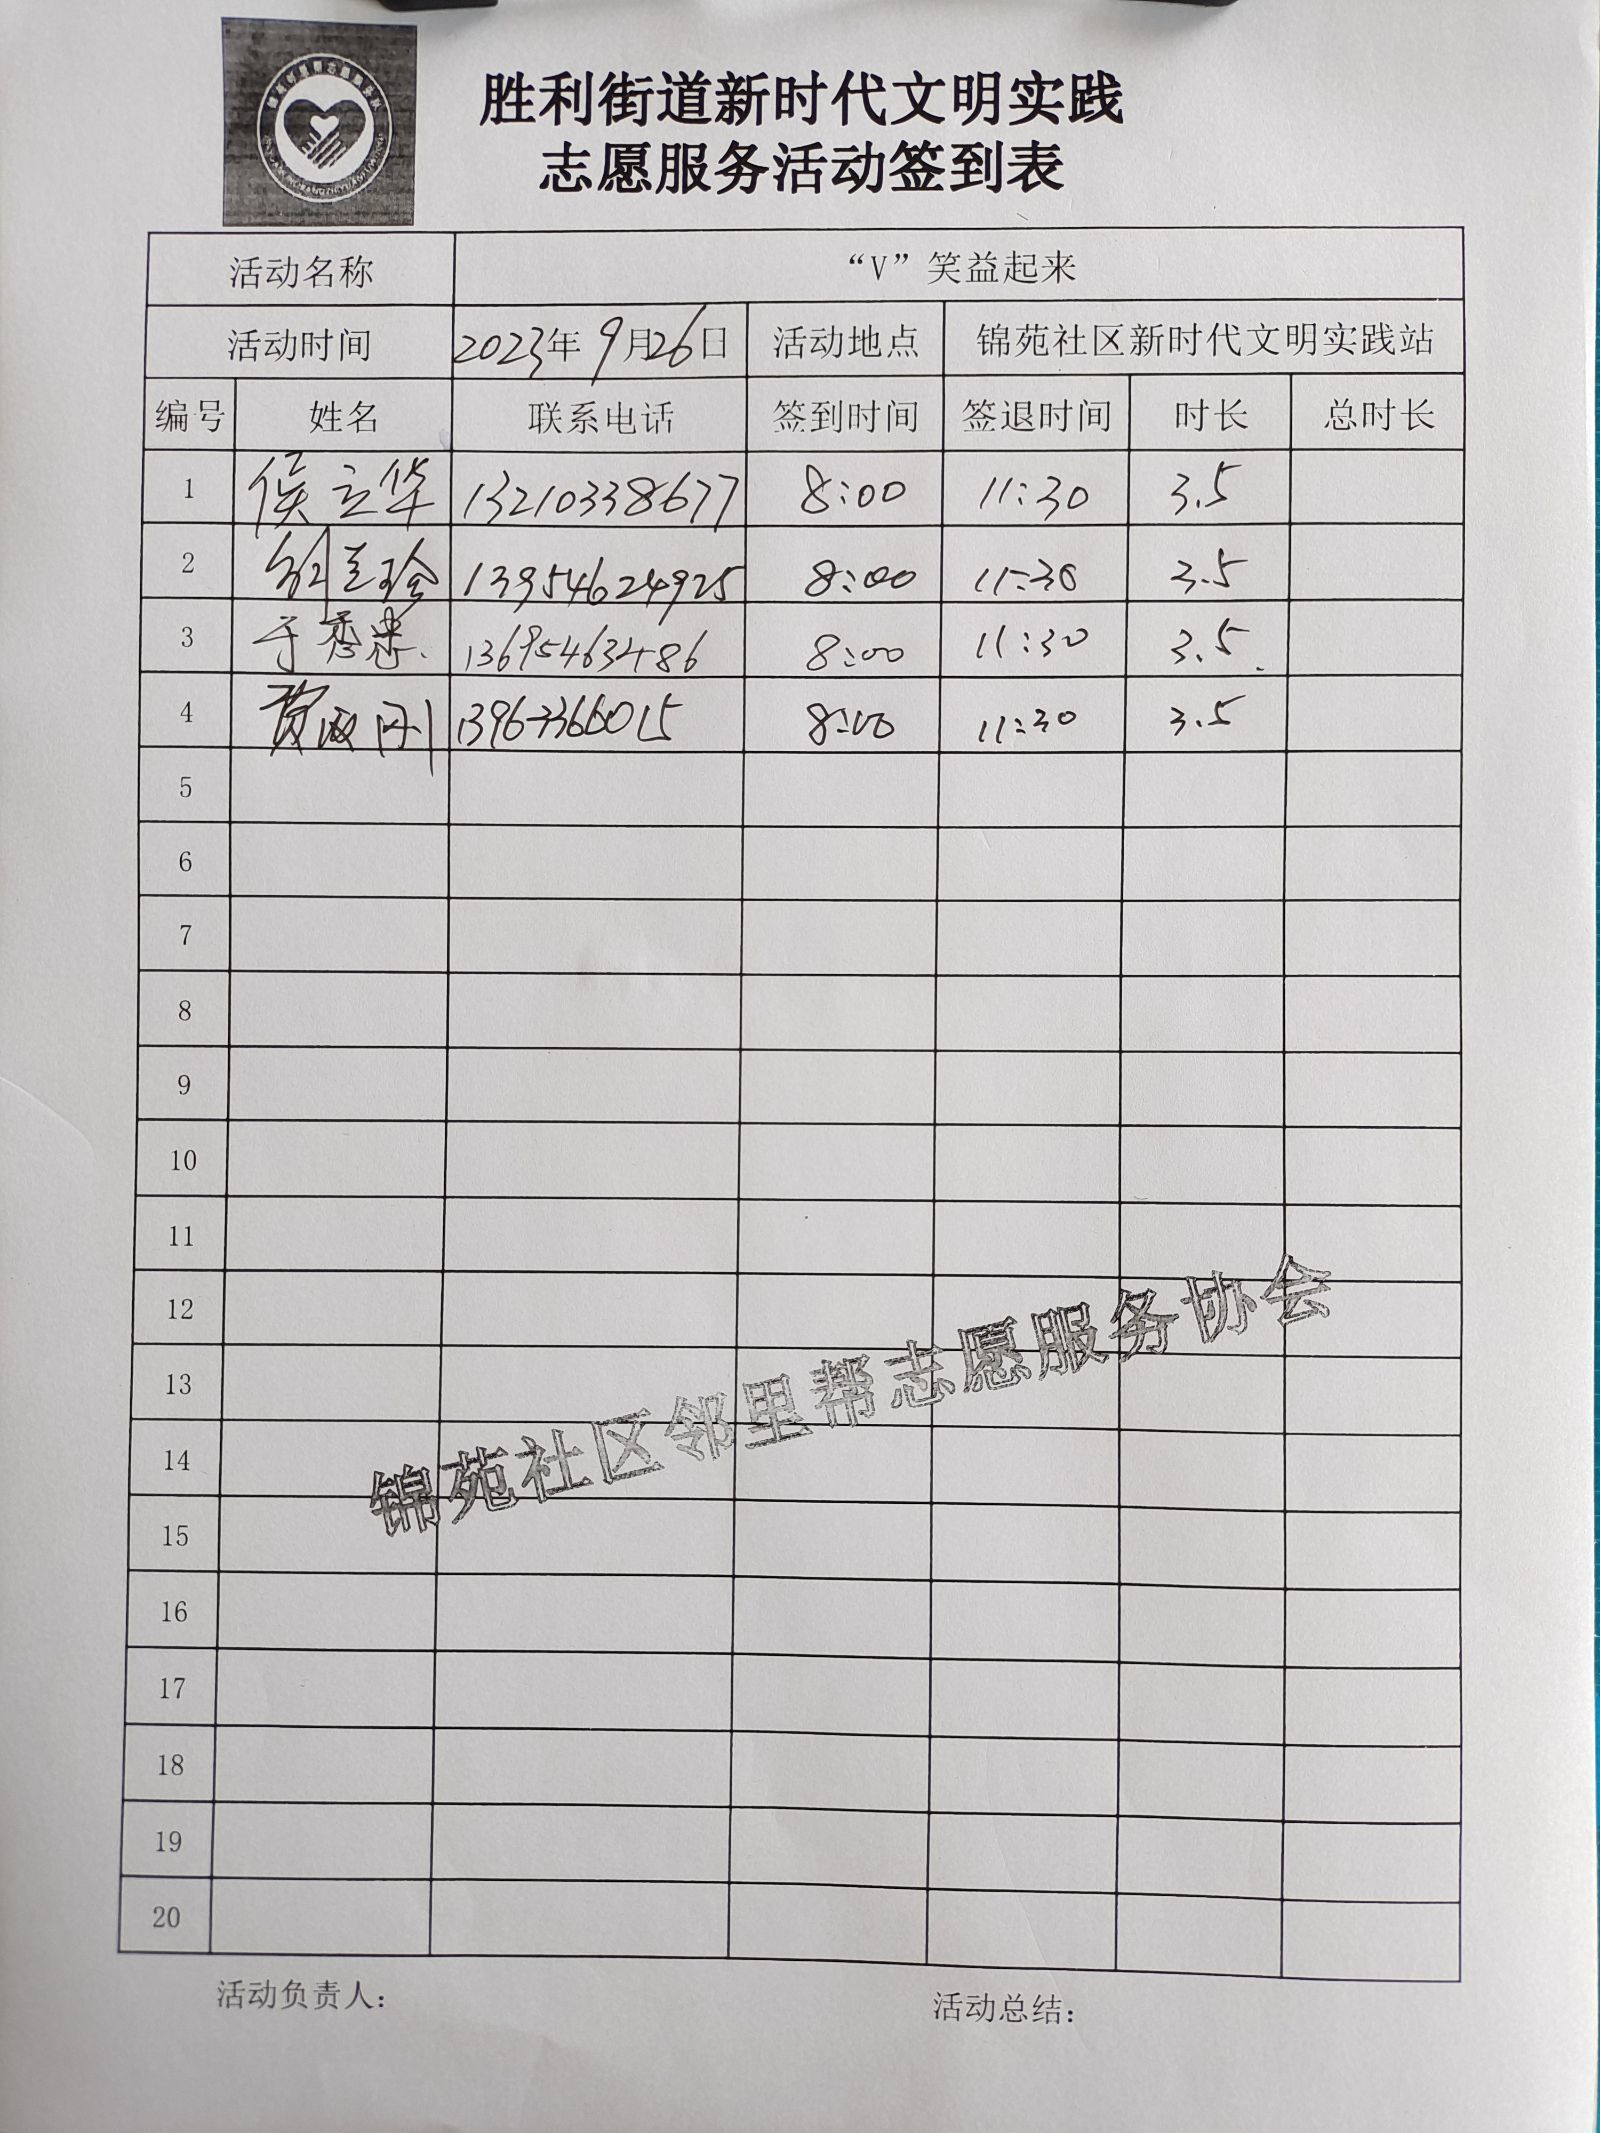 胜利街道新时代文明实践
志愿服务活动签到表
活动名称 “V”笑益起来
活动时间 2023年 9月26日 活动地点 锦苑社区新时代文明实践站
编号 姓名 联系电话 签到时间 签退时间 时长 总时长
1 侯立华 13210338677 8:00 11:30 3.5
2 兰珍 13954624925 8:00 11:30 3.5
3 于秀忠 13695463486 8:00 11:30 3.5
4 贾 刚 13963366015 8:00 11:30 3.5
5
6
7
8
9
10
11
12
13
14
15
16
17
18
19
20
锦苑社区邻里帮志愿服务协会
活动负责人: 活动总结: